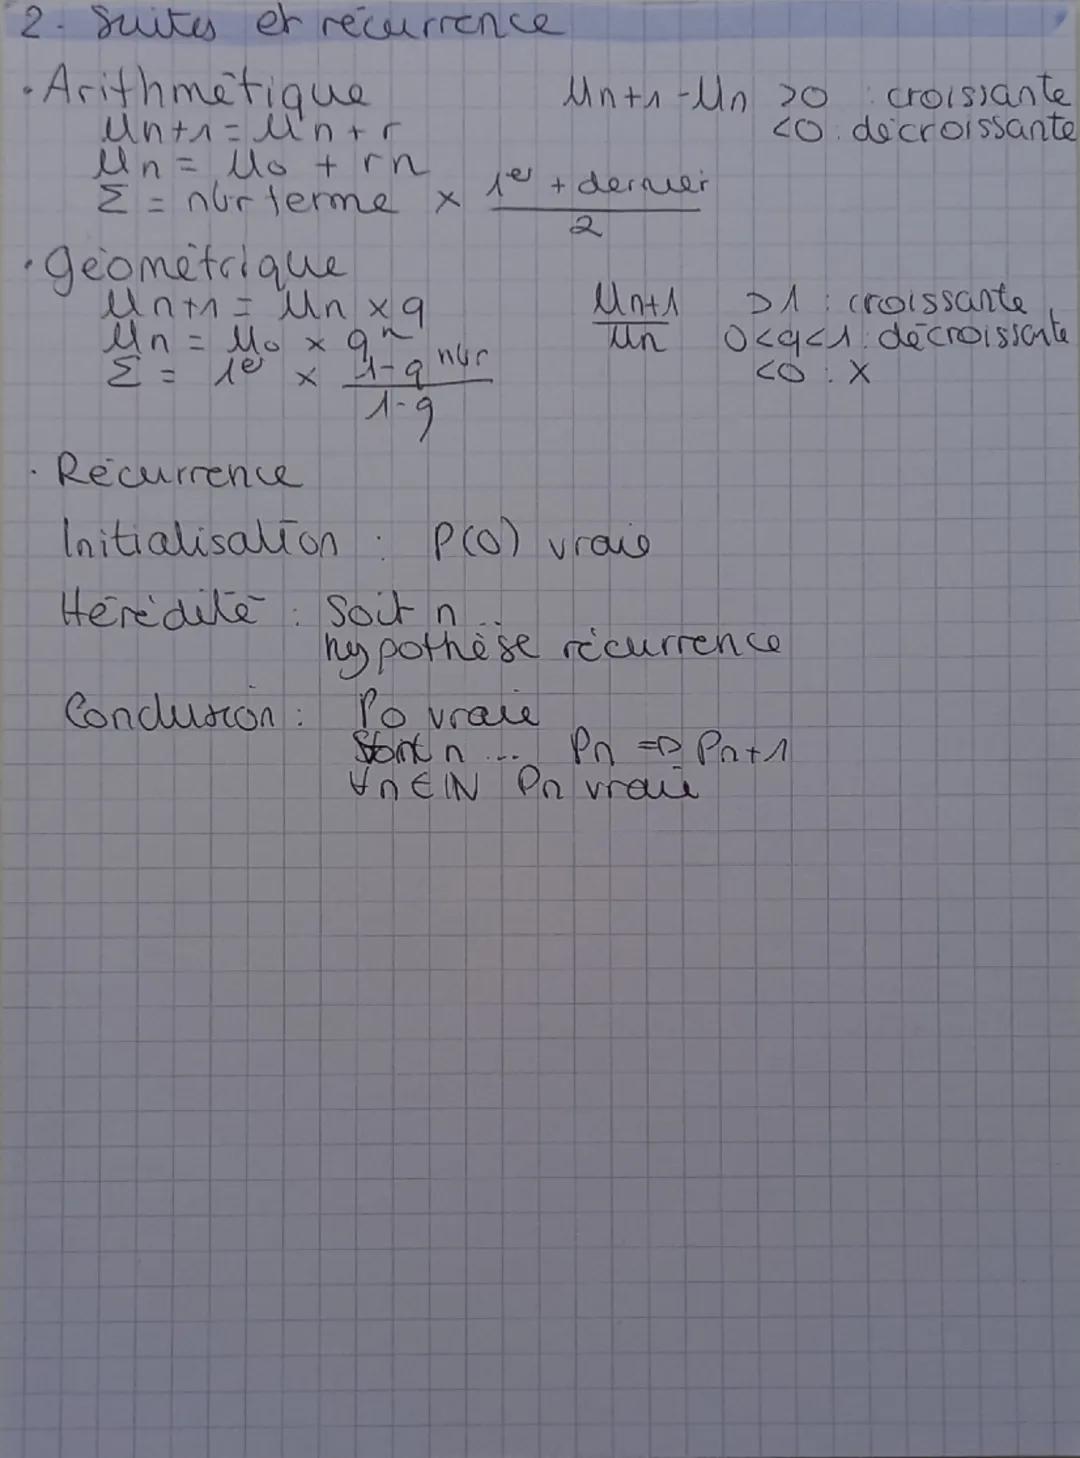 2. Suites et récurrence
• Arithmétique
Un+1 - Un >0 : croissante
<0 : décroissante
Un+1 = Un + r
Un = U0 + rn
Σ = nbr terme × (1er + dernier)/2
• géométrique
Un+1 = Un × q
Un = U0 × qⁿ
Σ = 1er × (1-q^nbr)/(1-q)
Un+1/Un >1 : croissante
0<q<1 : décroissante
<0 : X
• Récurrence
Initialisation : P(0) vraie
Hérédité : Soit n ...
hypothèse récurrence
Conclusion : P0 vraie
Soit n ... Pn => Pn+1
∀n∈ℕ Pn vraie